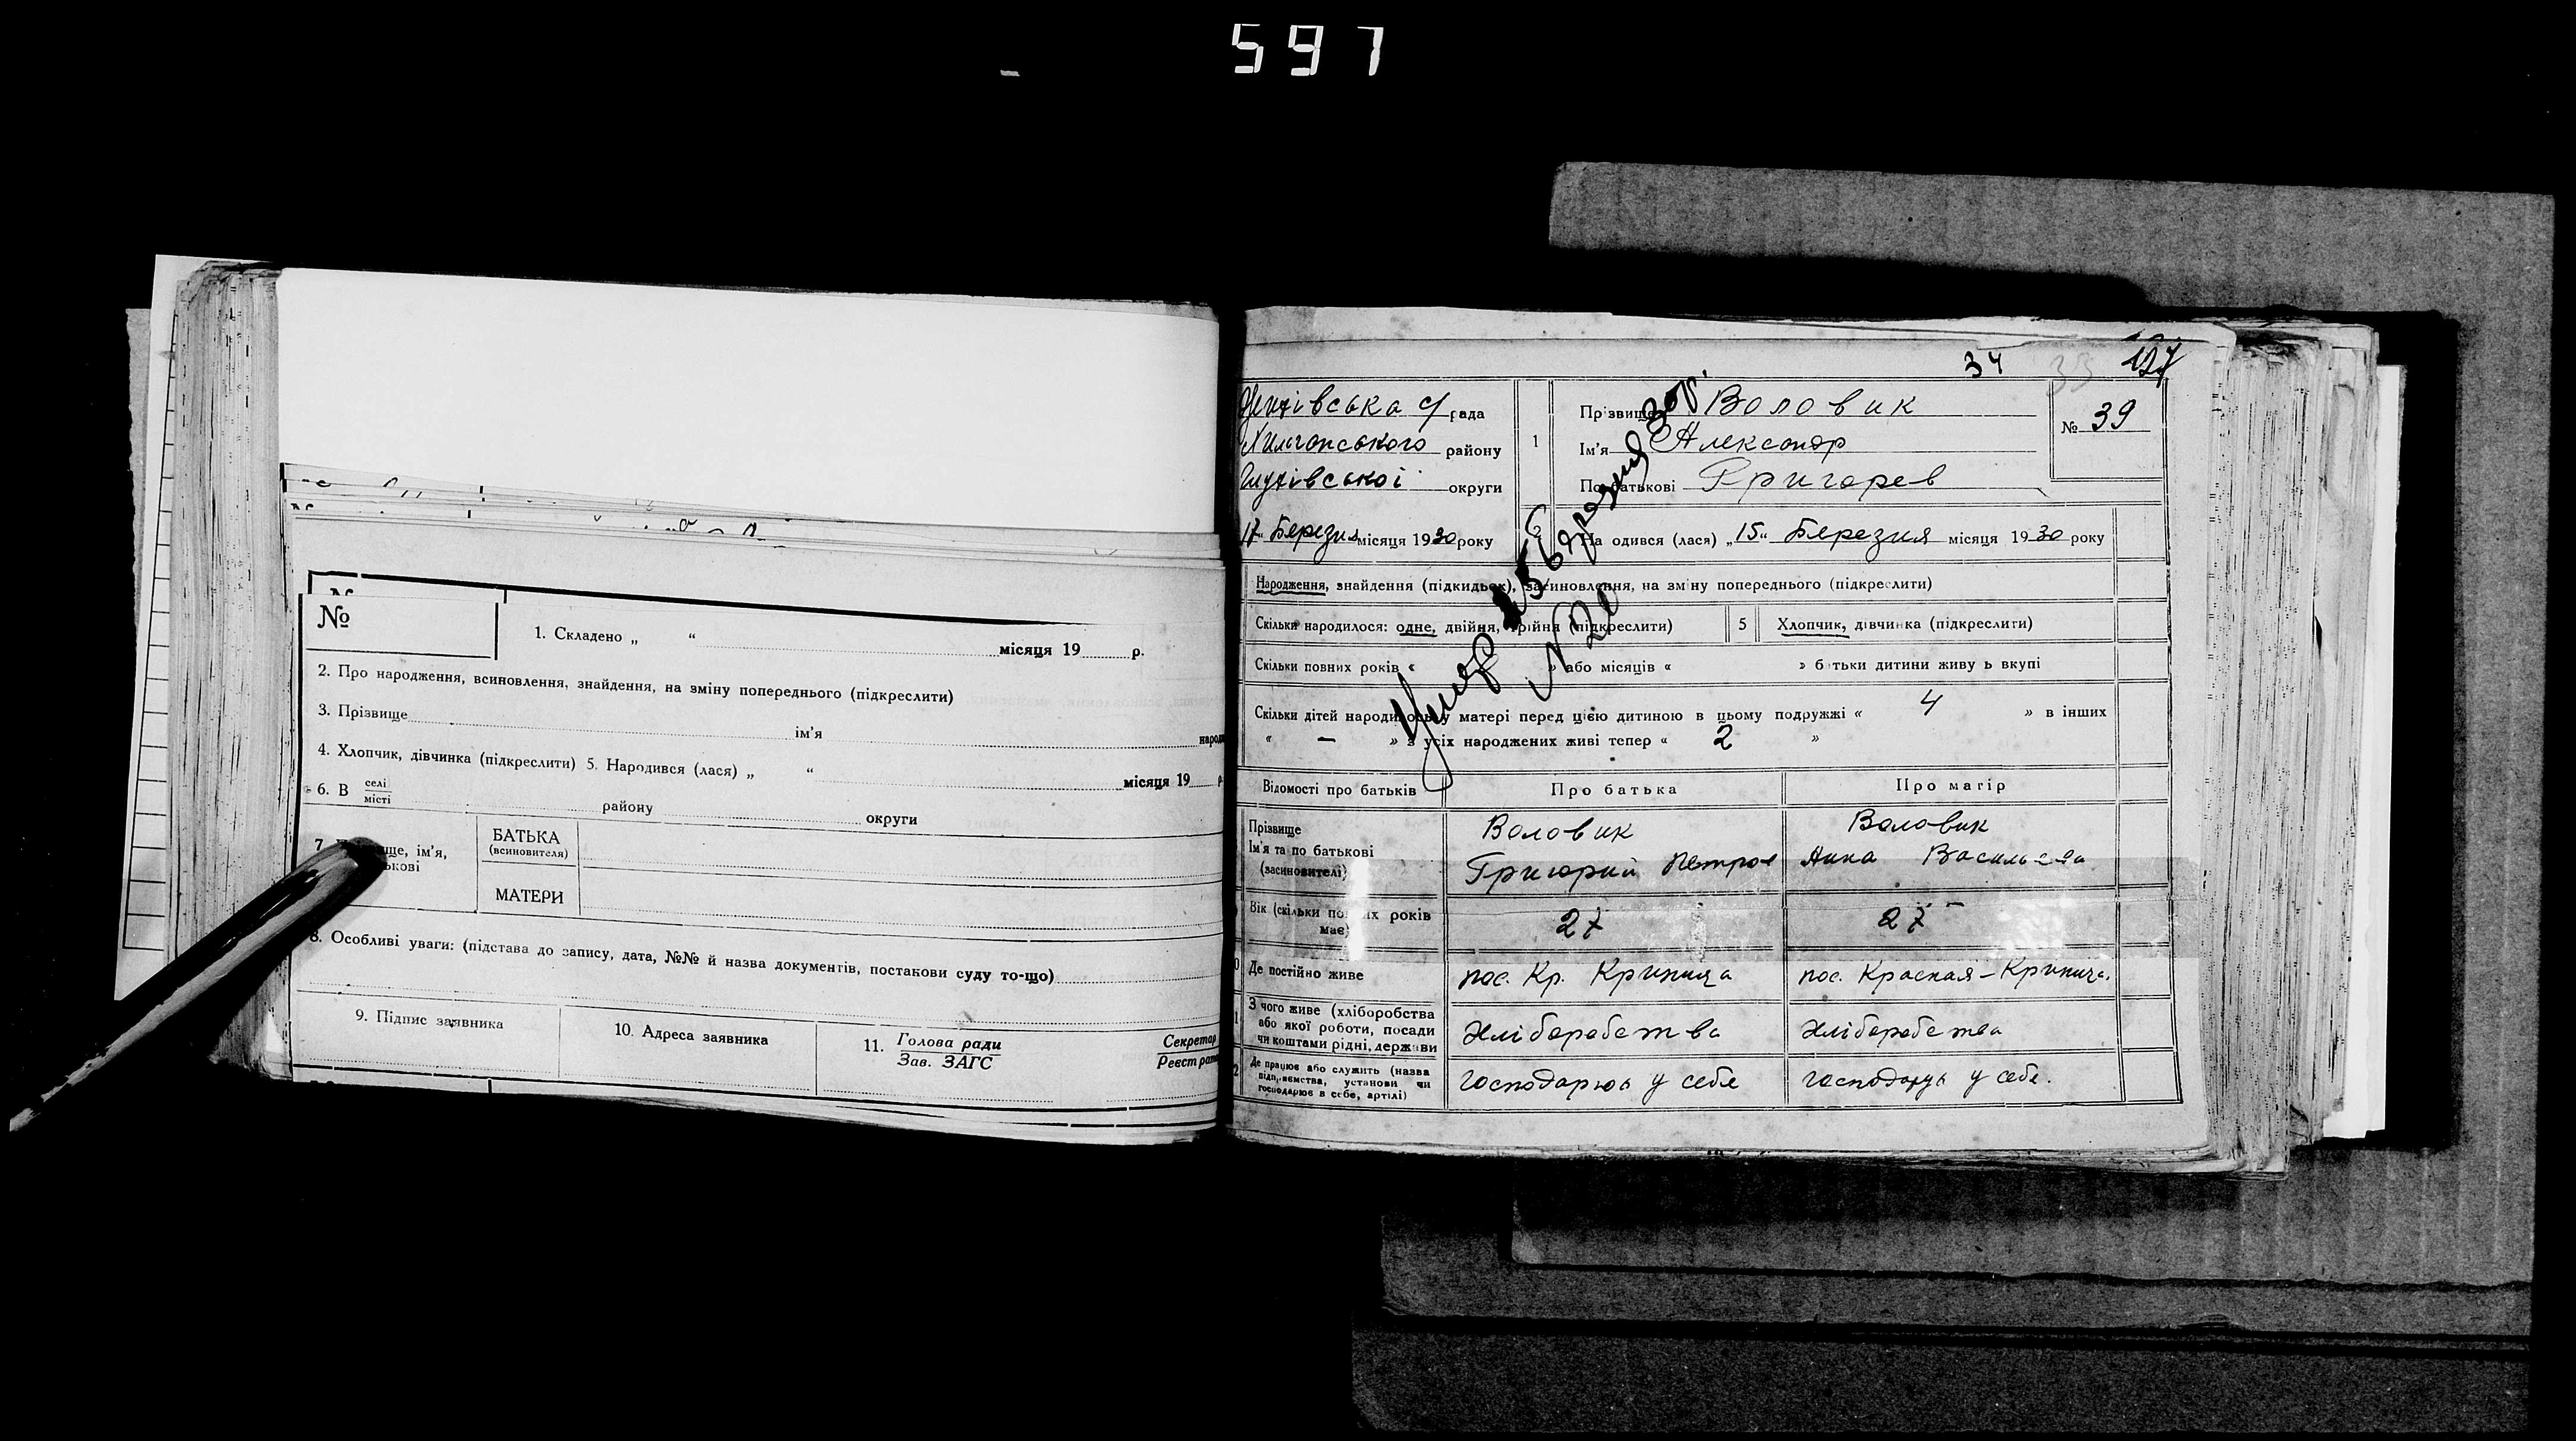 597
№
1. Складено „ “ місяця 19 р.
2. Про народження, всиновлення, знайдення, на зміну попереднього (підкреслити)
3. Прізвище ім'я народ
4. Хлопчик, дівчинка (підкреслити) 5. Народився (лася) „ “ місяця 19
6. В селі місті району округи
7. ще, ім'я, ькові
БАТЬКА
(всиновителя)
МАТЕРИ
8. Особливі уваги: (підстава до запису, дата, №№ й назва документів, постакови суду то-що)
9. Підпис заявника
10. Адреса заявника
11. Голова ради
Зав. ЗАГС
Секретар
Реєстрато
34 33
рада
району
Глухівської округи
1
Прізвище Воловик
Ім'я Александр
По батькові Григорев
№ 39
17 Березня місяця 1930 року
На одився (лася) „15“ Березня місяця 1930 року
Народження, знайдення (підкидьок), засиновлення, на зміну попереднього (підкреслити)
Скільки народилося: одне, двійня, трійня (підкреслити)
5 Хлопчик, дівчинка (підкреслити)
Скільки повних років « » або місяців « » б тьки дитини живу ь вкупі
Скільки дітей народилось у матері перед цією дитиною в цьому подружжі « 4 » в інших
« — » з усіх народжених живі тепер « 2 »
Умер 15 березня 30 р.
N 20
Відомості про батьків
Про батька
Про матір
Прізвище
Ім'я та по батькові
(засиновителі)
Воловик
Григорий Петров
Воловик
Анна Васильева
Вік (скільки повних років має)
27
27
Де постійно живе
пос. Кр. Криница
пос. Красная-Криница.
З чого живе (хліборобства
або якої роботи, посади
чи коштами рідні, держави
Хліборобства
Хліборобства
Де працює або служить (назва
підприємства, установи чи
господарює в себе, артілі)
господарює у себе
господарує у себе.